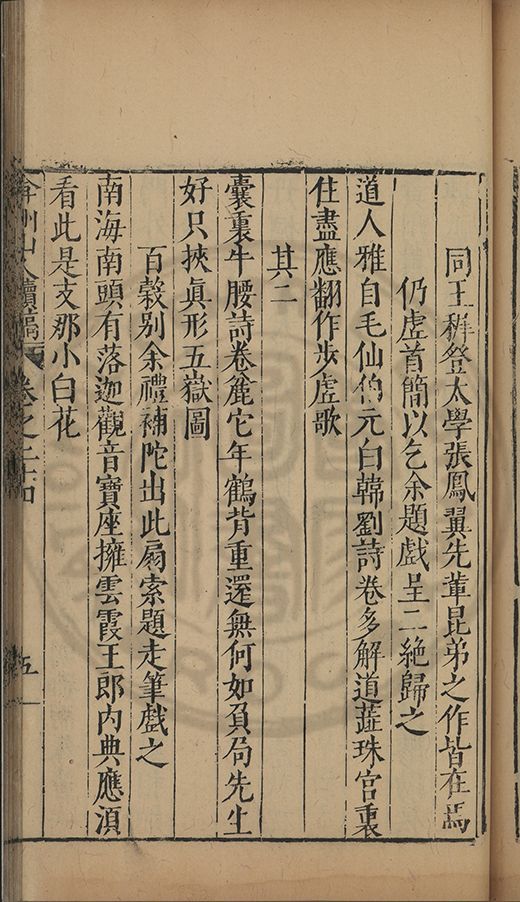 同王穉登太學張鳳翼先輩昆弟之作皆在焉
仍虛首簡以乞余題戲呈二絶歸之
道人雅自毛仙伯元白韓劉詩卷多解道蕋珠宮裏
住盡應翻作步虛歌
其二
囊裏牛腰詩卷麁它年鶴背重還無何如負局先生
好只挾眞形五嶽圖
百穀別余禮補陀出此扇索題走筆戲之
南海南頭有落迦觀音寶座擁雲霞王郎內典應湏
看此是支那小白花
弇州山人續稿 卷之二十四 五